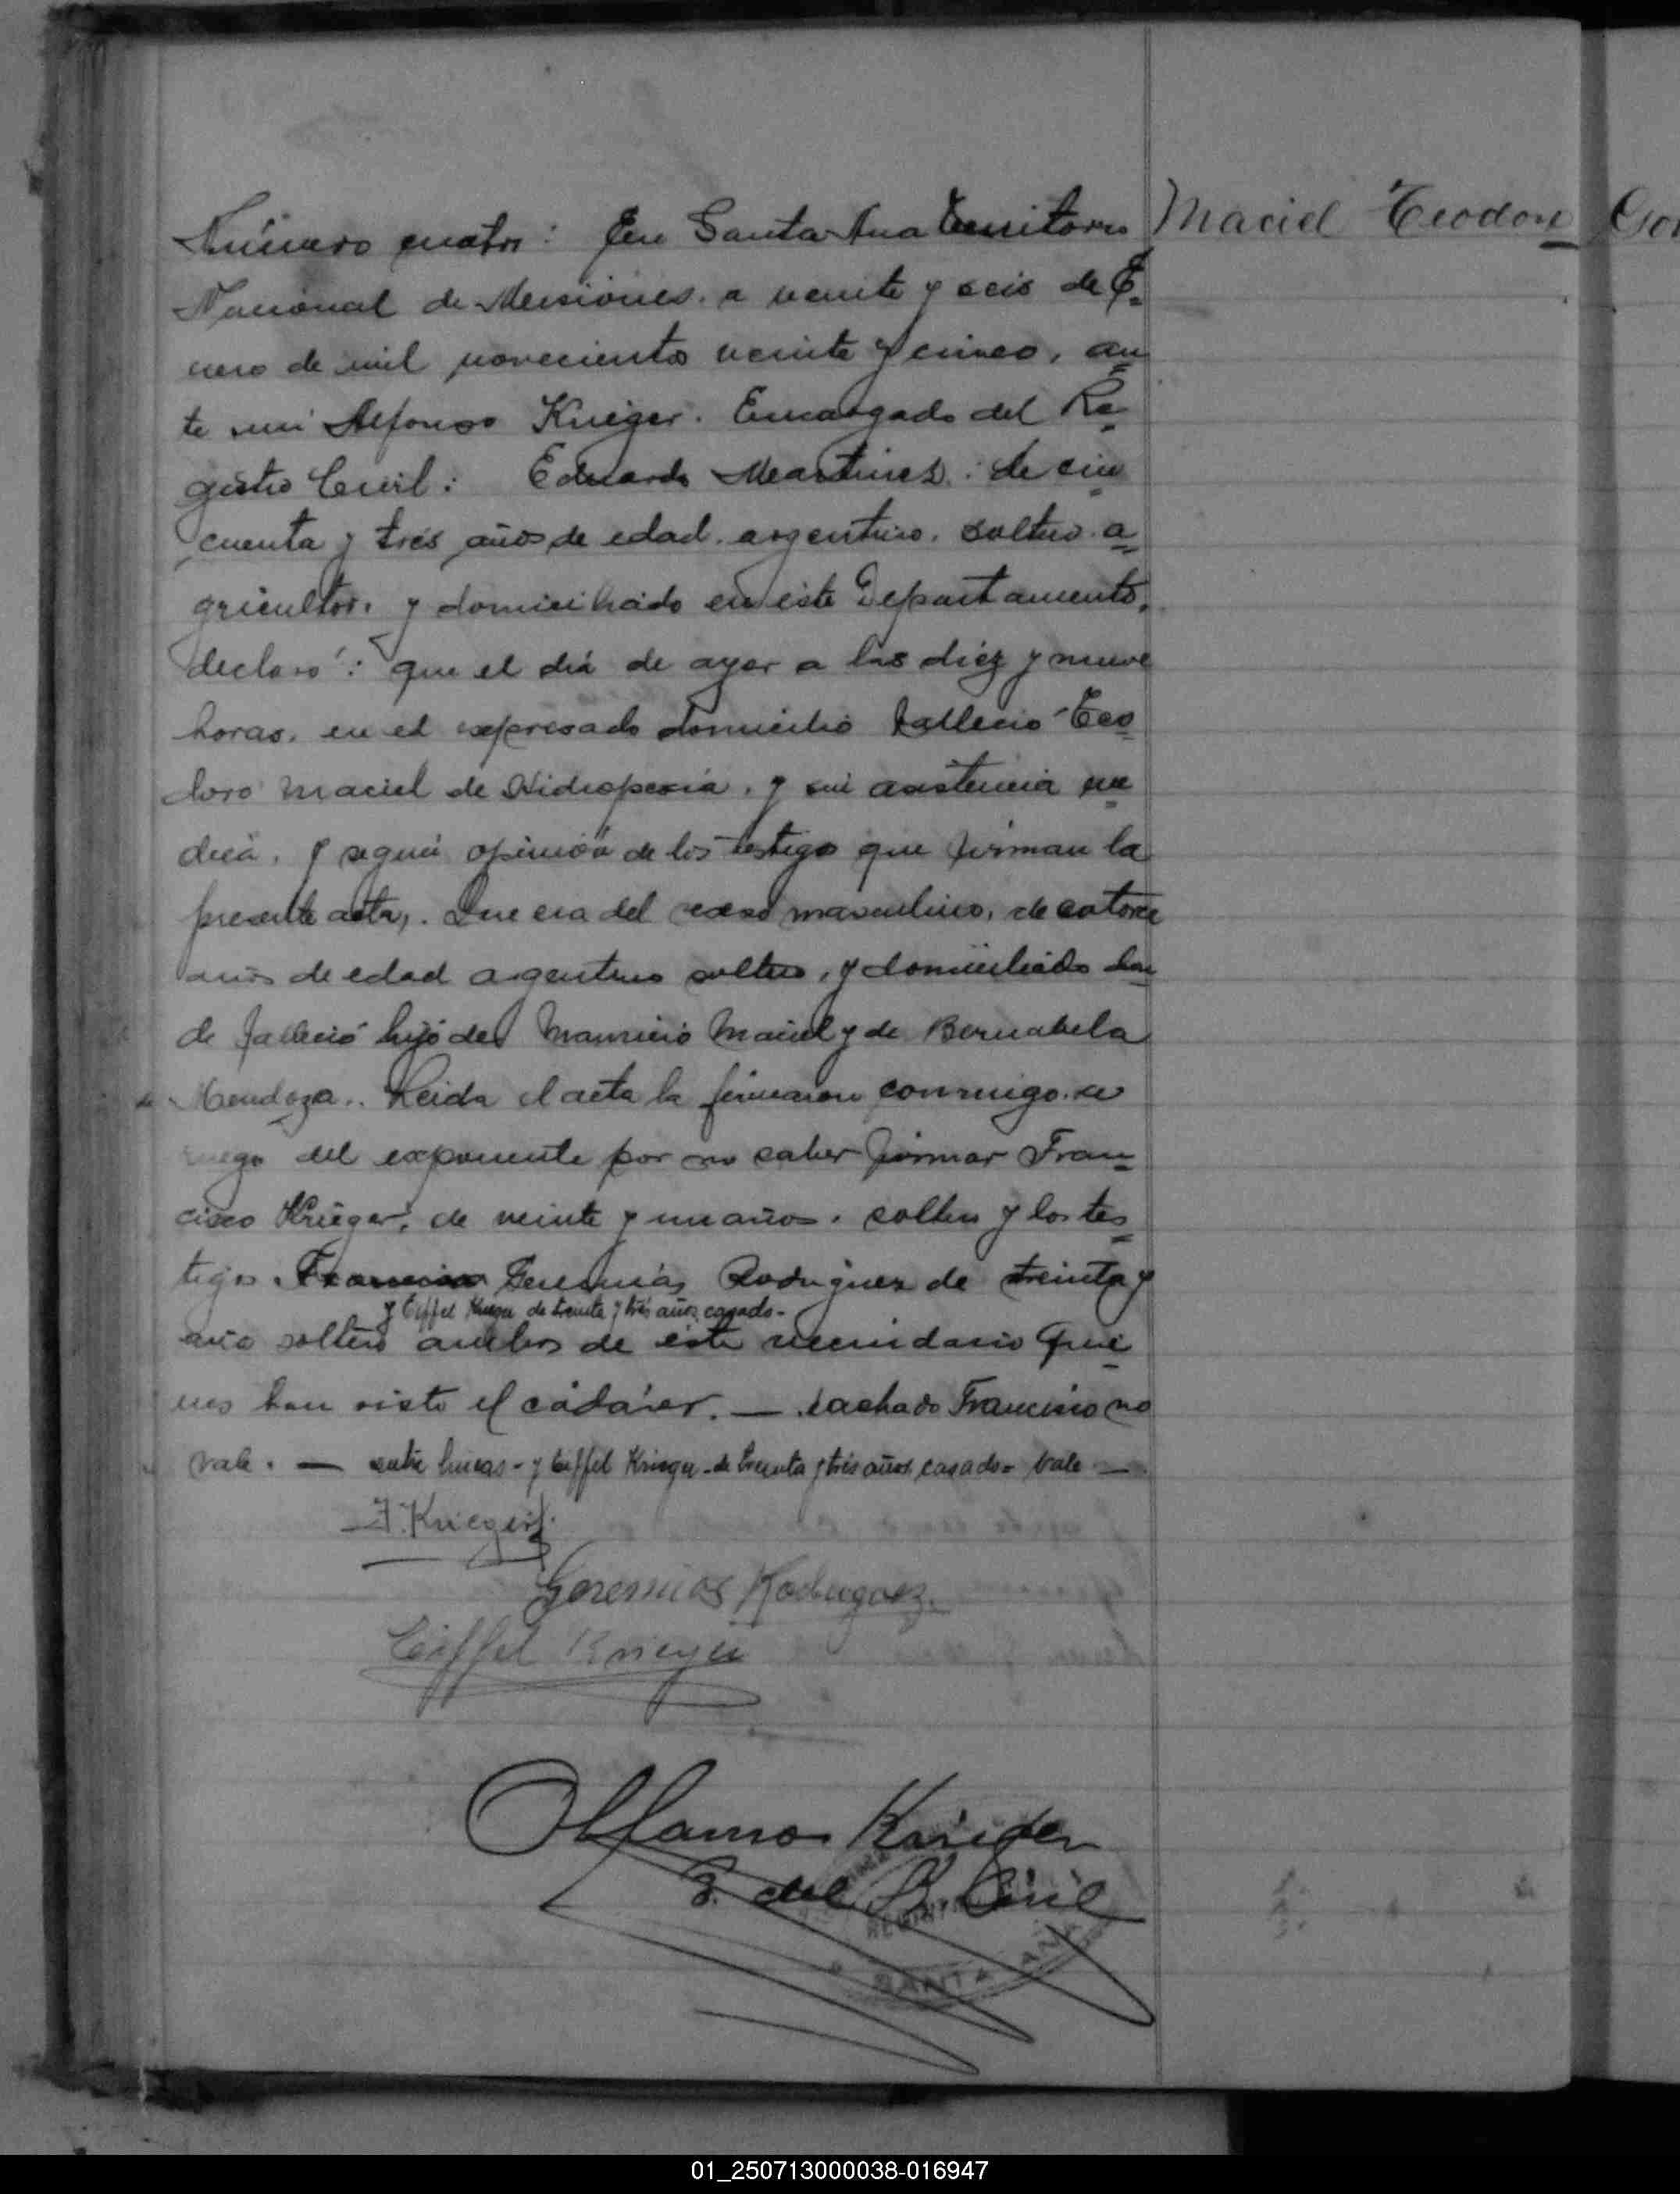 Número cuatro: En Santa Ana Territorio
Nacional de Misiones. a veinte y seis de E=
nero de mil novecientos veinte y cinco, an=
te mi Alfonso Krieger. Encargado del Re=
gistro Civil: Eduardo Martinez: de cin=
cuenta y trés años de edad. argentino. soltero. a=
gricultor. y domiciliado en este Departamento,
declaró: que el diá de ayer a las diéz y nueve
horas. en el expresado domicilio falleció Teo=
doro Maciel de Hidropesia. y sin asistencia me=
dica. y según opinión de los testigo que firman la
presente acta,. Que era del sexso masculino, de catorce
años de edad argentino soltero, y domiciliado don=
de falleció hijo de Mauricio Maciel y de Bernabela
Mendoza.. Leida el acta la firmaron conmigo. a
ruego del exponente por no saber firmar Fran=
cisco Krieger, de veinte y un años. soltero y los tes=
tigos. Francisco Geremiás Rodriguez de treinta y
y Eiffel Krieger de treinta y trés años, casado-
año soltero ambos de éste vecindario Quie=
nes han visto el cádáver. — tachado Francisco no
vale. — entre lineas - y Eiffel Krieger - de treinta y trés años, casado= vale —
F. Krieger
Geremias Rodriguez.
Eiffel Krieger
Alfonso Krieger
E. del R. Civil
SANTA ANA
Maciel Teodoro
01_250713000038-016947